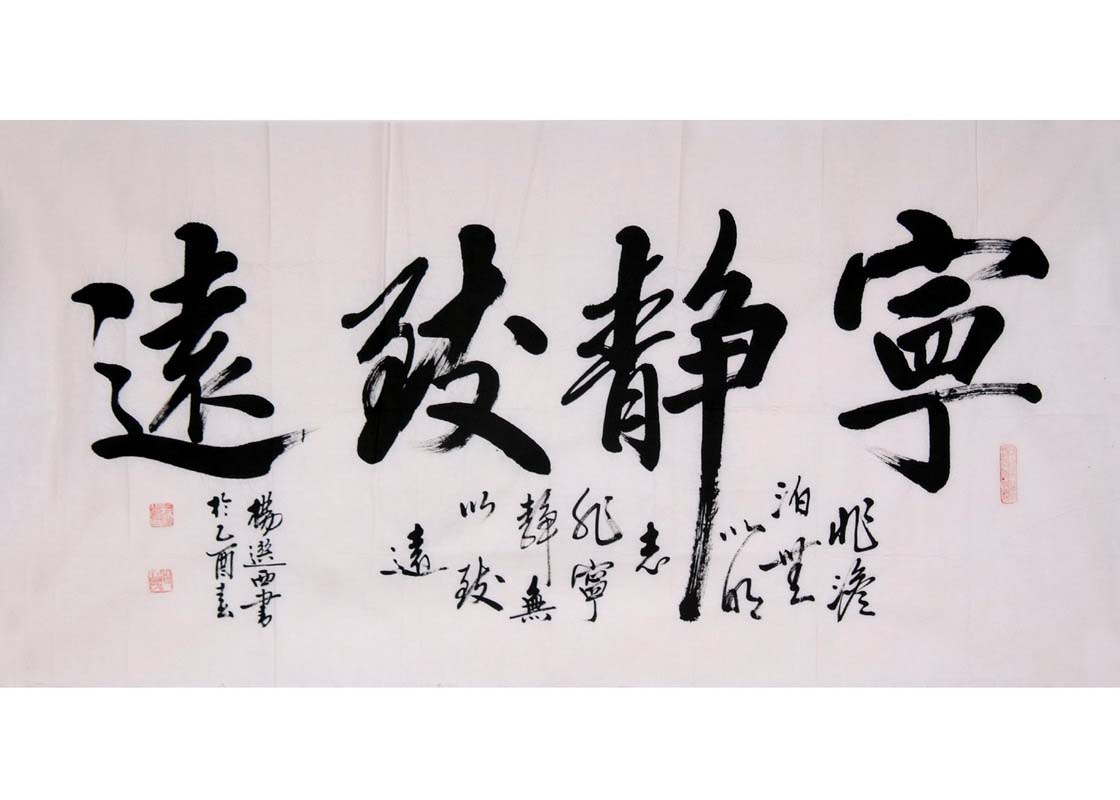 寧靜致遠
非澹
泊無
以明
志
非寧
靜無
以致
遠
楊選西書
於乙酉春